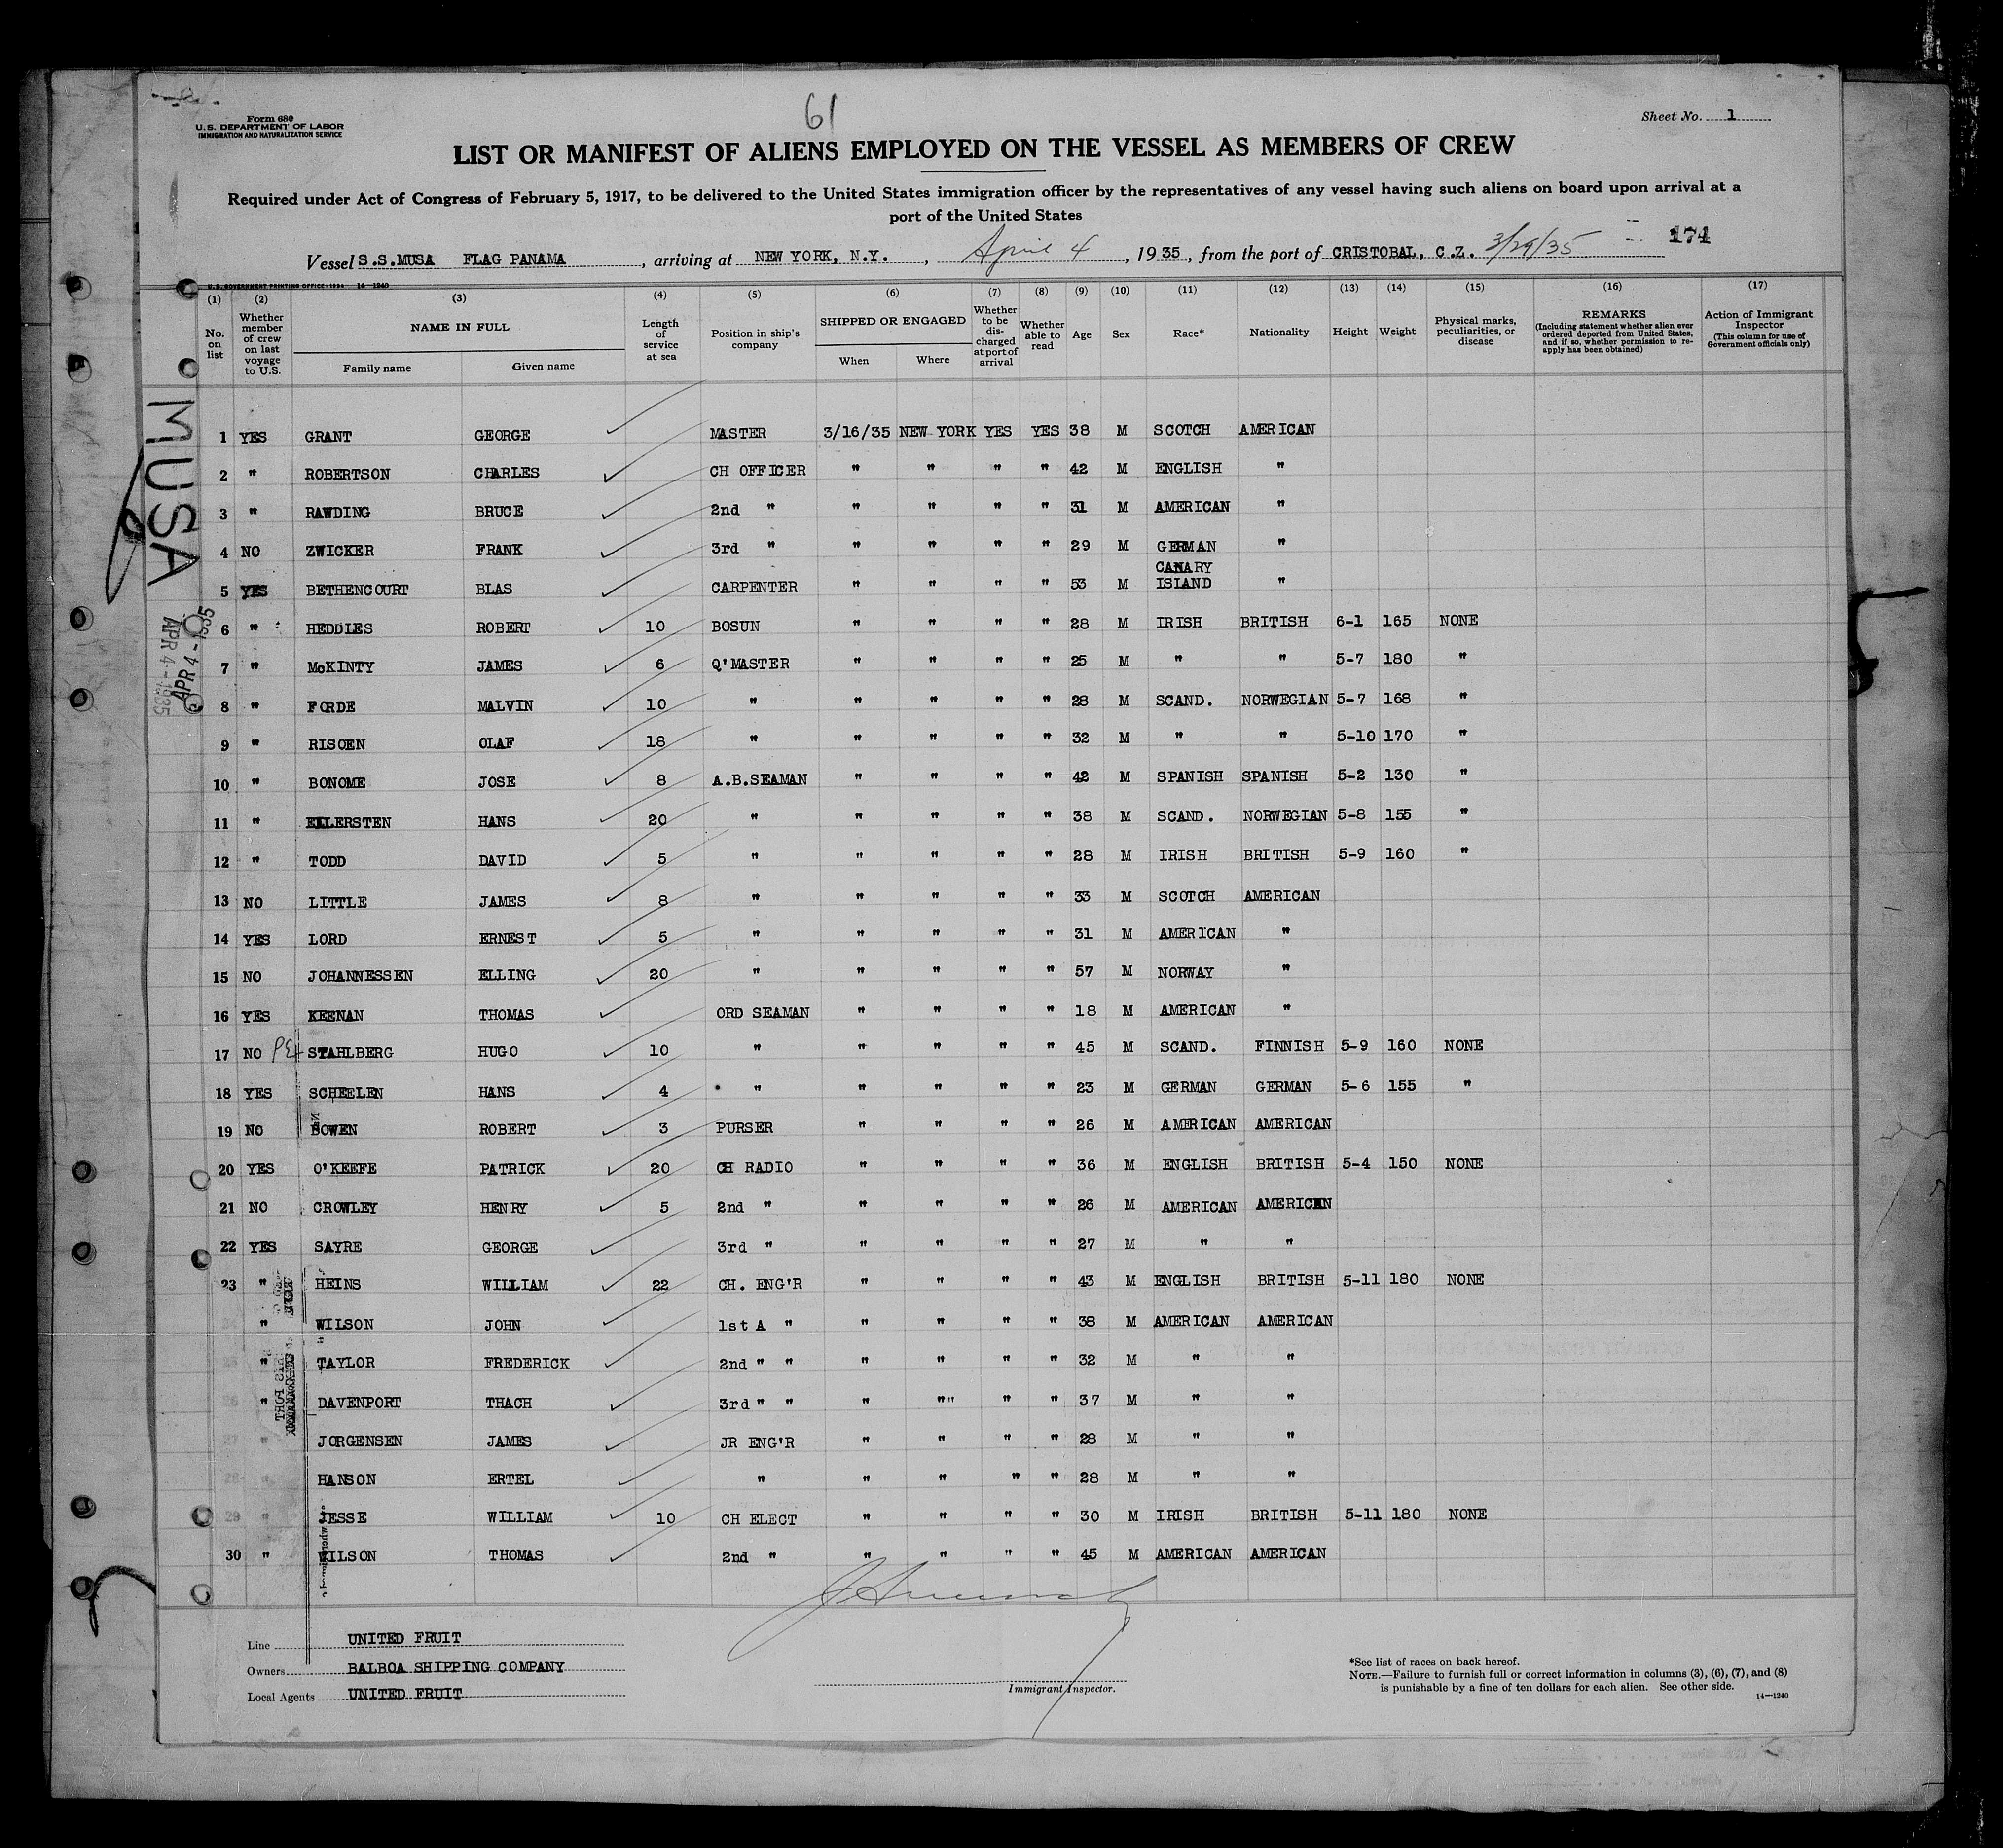 61
Form 680
U.S. DEPARTMENT OF LABOR
IMMIGRATION AND NATURALIZATION SERVICE
Sheet No. 1
LIST OR MANIFEST OF ALIENS EMPLOYED ON THE VESSEL AS MEMBERS OF CREW
Required under Act of Congress of February 5, 1917, to be delivered to the United States immigration officer by the representatives of any vessel having such aliens on board upon arrival at a
port of the United States
174
Vessel S.S.MUSA FLAG PANAMA, arriving at NEW YORK, N.Y., April 4, 1935, from the port of CRISTOBAL, C.Z. 3/29/35
U.S. GOVERNMENT PRINTING OFFICE: 1934 14—1240
(1) (2) (3) (4) (5) (6) (7) (8) (9) (10) (11) (12) (13) (14) (15) (16) (17)
No. on list
Whether member of crew on last voyage to U.S.
NAME IN FULL
Family name
Given name
Length of service at sea
Position in ship's company
SHIPPED OR ENGAGED
When
Where
Whether to be discharged at port of arrival
Whether able to read
Age
Sex
Race*
Nationality
Height
Weight
Physical marks, peculiarities, or disease
REMARKS
(Including statement whether alien ever ordered deported from United States, and if so, whether permission to reapply has been obtained)
Action of Immigrant Inspector
(This column for use of Government officials only)
MUSA
APR 4 - 1935
APR 4 - 1935
1 YES GRANT GEORGE MASTER 3/16/35 NEW YORK YES YES 38 M SCOTCH AMERICAN
2 " ROBERTSON CHARLES CH OFFICER " " " " 42 M ENGLISH "
3 " RAWDING BRUCE 2nd " " " " " 31 M AMERICAN "
4 NO ZWICKER FRANK 3rd " " " " " 29 M GERMAN "
5 YES BETHENCOURT BLAS CARPENTER " " " " 53 M CANARY ISLAND "
6 " HEDDLES ROBERT 10 BOSUN " " " " 28 M IRISH BRITISH 6-1 165 NONE
7 " McKINTY JAMES 6 Q'MASTER " " " " 25 M " " 5-7 180 "
8 " FORDE MALVIN 10 " " " " " 28 M SCAND. NORWEGIAN 5-7 168 "
9 " RISOEN OLAF 18 " " " " " 32 M " " 5-10 170 "
10 " BONOME JOSE 8 A.B.SEAMAN " " " " 42 M SPANISH SPANISH 5-2 130 "
11 " ELLERSTEN HANS 20 " " " " " 38 M SCAND. NORWEGIAN 5-8 155 "
12 " TODD DAVID 5 " " " " " 28 M IRISH BRITISH 5-9 160 "
13 NO LITTLE JAMES 8 " " " " " 33 M SCOTCH AMERICAN
14 YES LORD ERNEST 5 " " " " " 31 M AMERICAN "
15 NO JOHANNESSEN ELLING 20 " " " " " 57 M NORWAY "
16 YES KEENAN THOMAS ORD SEAMAN " " " " 18 M AMERICAN "
17 NO STAHLBERG HUGO 10 " " " " " 45 M SCAND. FINNISH 5-9 160 NONE
18 YES SCHEELEN HANS 4 " " " " " 23 M GERMAN GERMAN 5-6 155 "
19 NO BOWEN ROBERT 3 PURSER " " " " 26 M AMERICAN AMERICAN
20 YES O'KEEFE PATRICK 20 CH RADIO " " " " 36 M ENGLISH BRITISH 5-4 150 NONE
21 NO CROWLEY HENRY 5 2nd " " " " " 26 M AMERICAN AMERICAN
22 YES SAYRE GEORGE 3rd " " " " " 27 M " "
23 " HEINS WILLIAM 22 CH. ENG'R " " " " 43 M ENGLISH BRITISH 5-11 180 NONE
" WILSON JOHN 1st A " " " " " 38 M AMERICAN AMERICAN
25 " TAYLOR FREDERICK 2nd " " " " " " 32 M " "
26 " DAVENPORT THACH 3rd " " " "" " " 37 M " "
27 " JORGENSEN JAMES JR ENG'R " " " " 28 M " "
28 " HANSON ERTEL " " " " " 28 M " "
29 " JESSE WILLIAM 10 CH ELECT " " " " 30 M IRISH BRITISH 5-11 180 NONE
30 " WILSON THOMAS 2nd " " " " " 45 M AMERICAN AMERICAN
Line UNITED FRUIT
Owners BALBOA SHIPPING COMPANY
Local Agents UNITED FRUIT
Immigrant Inspector.
*See list of races on back hereof.
NOTE.—Failure to furnish full or correct information in columns (3), (6), (7), and (8)
is punishable by a fine of ten dollars for each alien. See other side.
14—1240